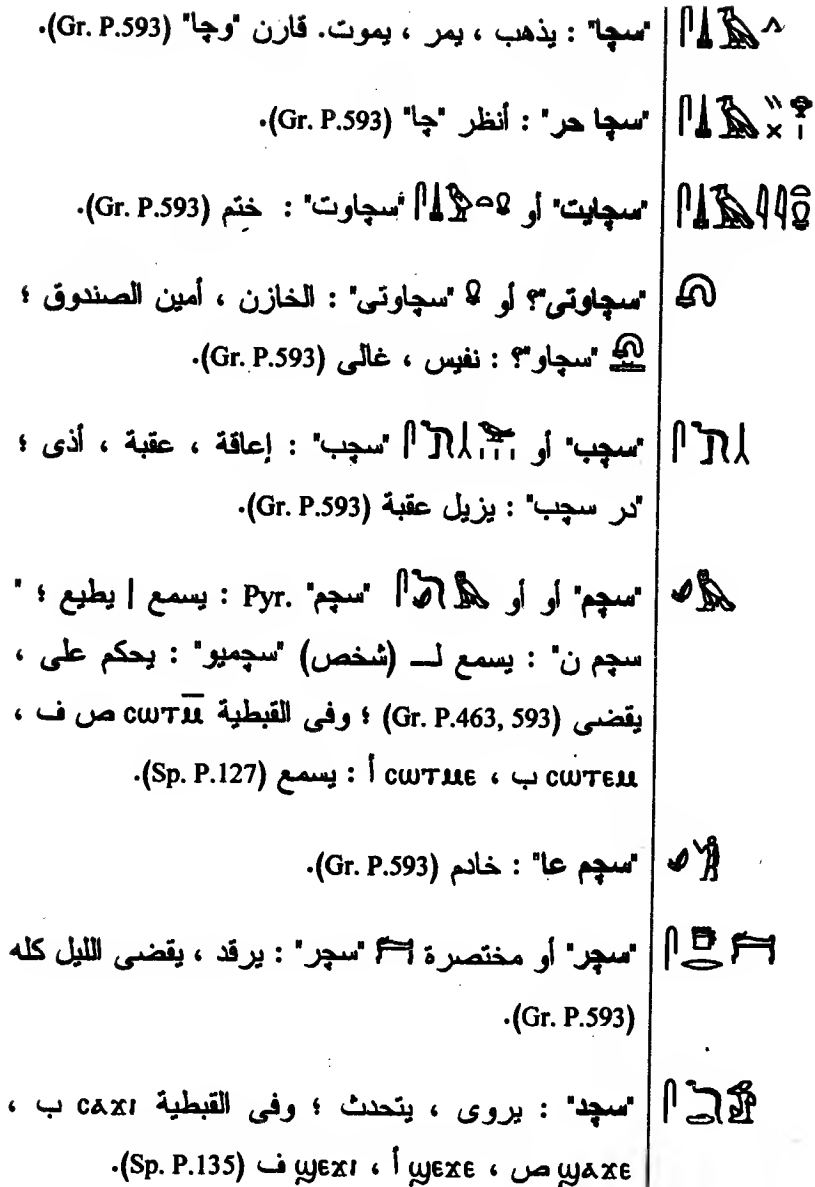 "سچا" : يذهب ، يمر ، يموت. قارن "وچا" (Gr. P.593).
"سچا حر" : أنظر "چا" (Gr. P.593).
"سچايت" أو "سچاوت" : ختم (Gr. P.593).
"سچاوتى"؟ أو "سچاوتى" : الخازن ، أمين الصندوق ؛
"سچاو"؟ : نفيس ، غالى (Gr. P.593).
"سچب" أو "سچب" : إعاقة ، عقبة ، أذى ؛
"در سچب" : يزيل عقبة (Gr. P.593).
"سچم" أو أو "سچم" Pyr. : يسمع | يطيع ؛ "
سچم ن" : يسمع لـــ (شخص) "سچميو" : يحكم على ،
يقضى (Gr. P.463, 593) ؛ وفى القبطية ⲥⲱⲧⲙ̅ ص ف ،
ⲥⲱⲧⲉⲙ ب ، ⲥⲱⲧⲙⲉ أ : يسمع (Sp. P.127).
"سچم عا" : خادم (Gr. P.593).
"سچر" أو مختصرة "سچر" : يرقد ، يقضى الليل كله
(Gr. P.593).
"سچد" : يروى ، يتحدث ؛ وفى القبطية ⲥⲁϫⲓ ب ،
ϣⲁϫⲉ ص ، ϣⲉϫⲉ أ ، ϣⲉϫⲓ ف (Sp. P.135).